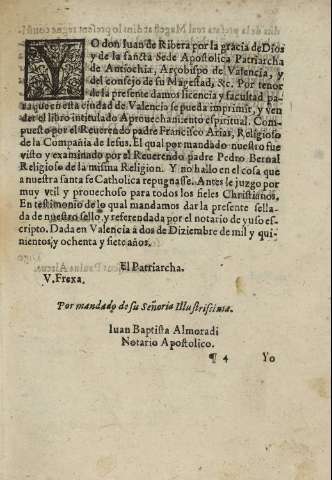 YO don Iuan de Ribera por la gracia de Dios
y de la sancta Sede Apostolica Patriarcha
de Antiochia, Arçobispo de Valencia, y
del consejo de su Magestad, &c. Por tenor
de la presente damos licencia y facultad pa-
ra que en esta ciudad de Valencia se pueda imprimir, y ven
der el libro intitulado Aprouechamiento espiritual. Com
puesto por el Reuerendo padre Francisco Arias, Religioso
de la Compañia de Iesus. El qual por mandado nuestro fue
visto y examinado por el Reuerendo padre Pedro Bernal
Religioso de la misma Religion. Y no hallo en el cosa que
a nuestra santa fe Catholica repugnasse. Antes le juzgo por
muy vtil y prouechoso para todos los fieles Christianos,
En testimonio de lo qual mandamos dar la presente sella-
da de nuestro sello, y referendada por el notario de yuso es-
cripto. Dada en Valencia à dos de Diziembre de mil y qui-
nientos, y ochenta y siete años.
El Patriarcha.
V. Frexa.
Por mandado de su Señoria Illustrissima.
Iuan Baptista Almoradi
Notario Apostolico.
¶ 4 Yo